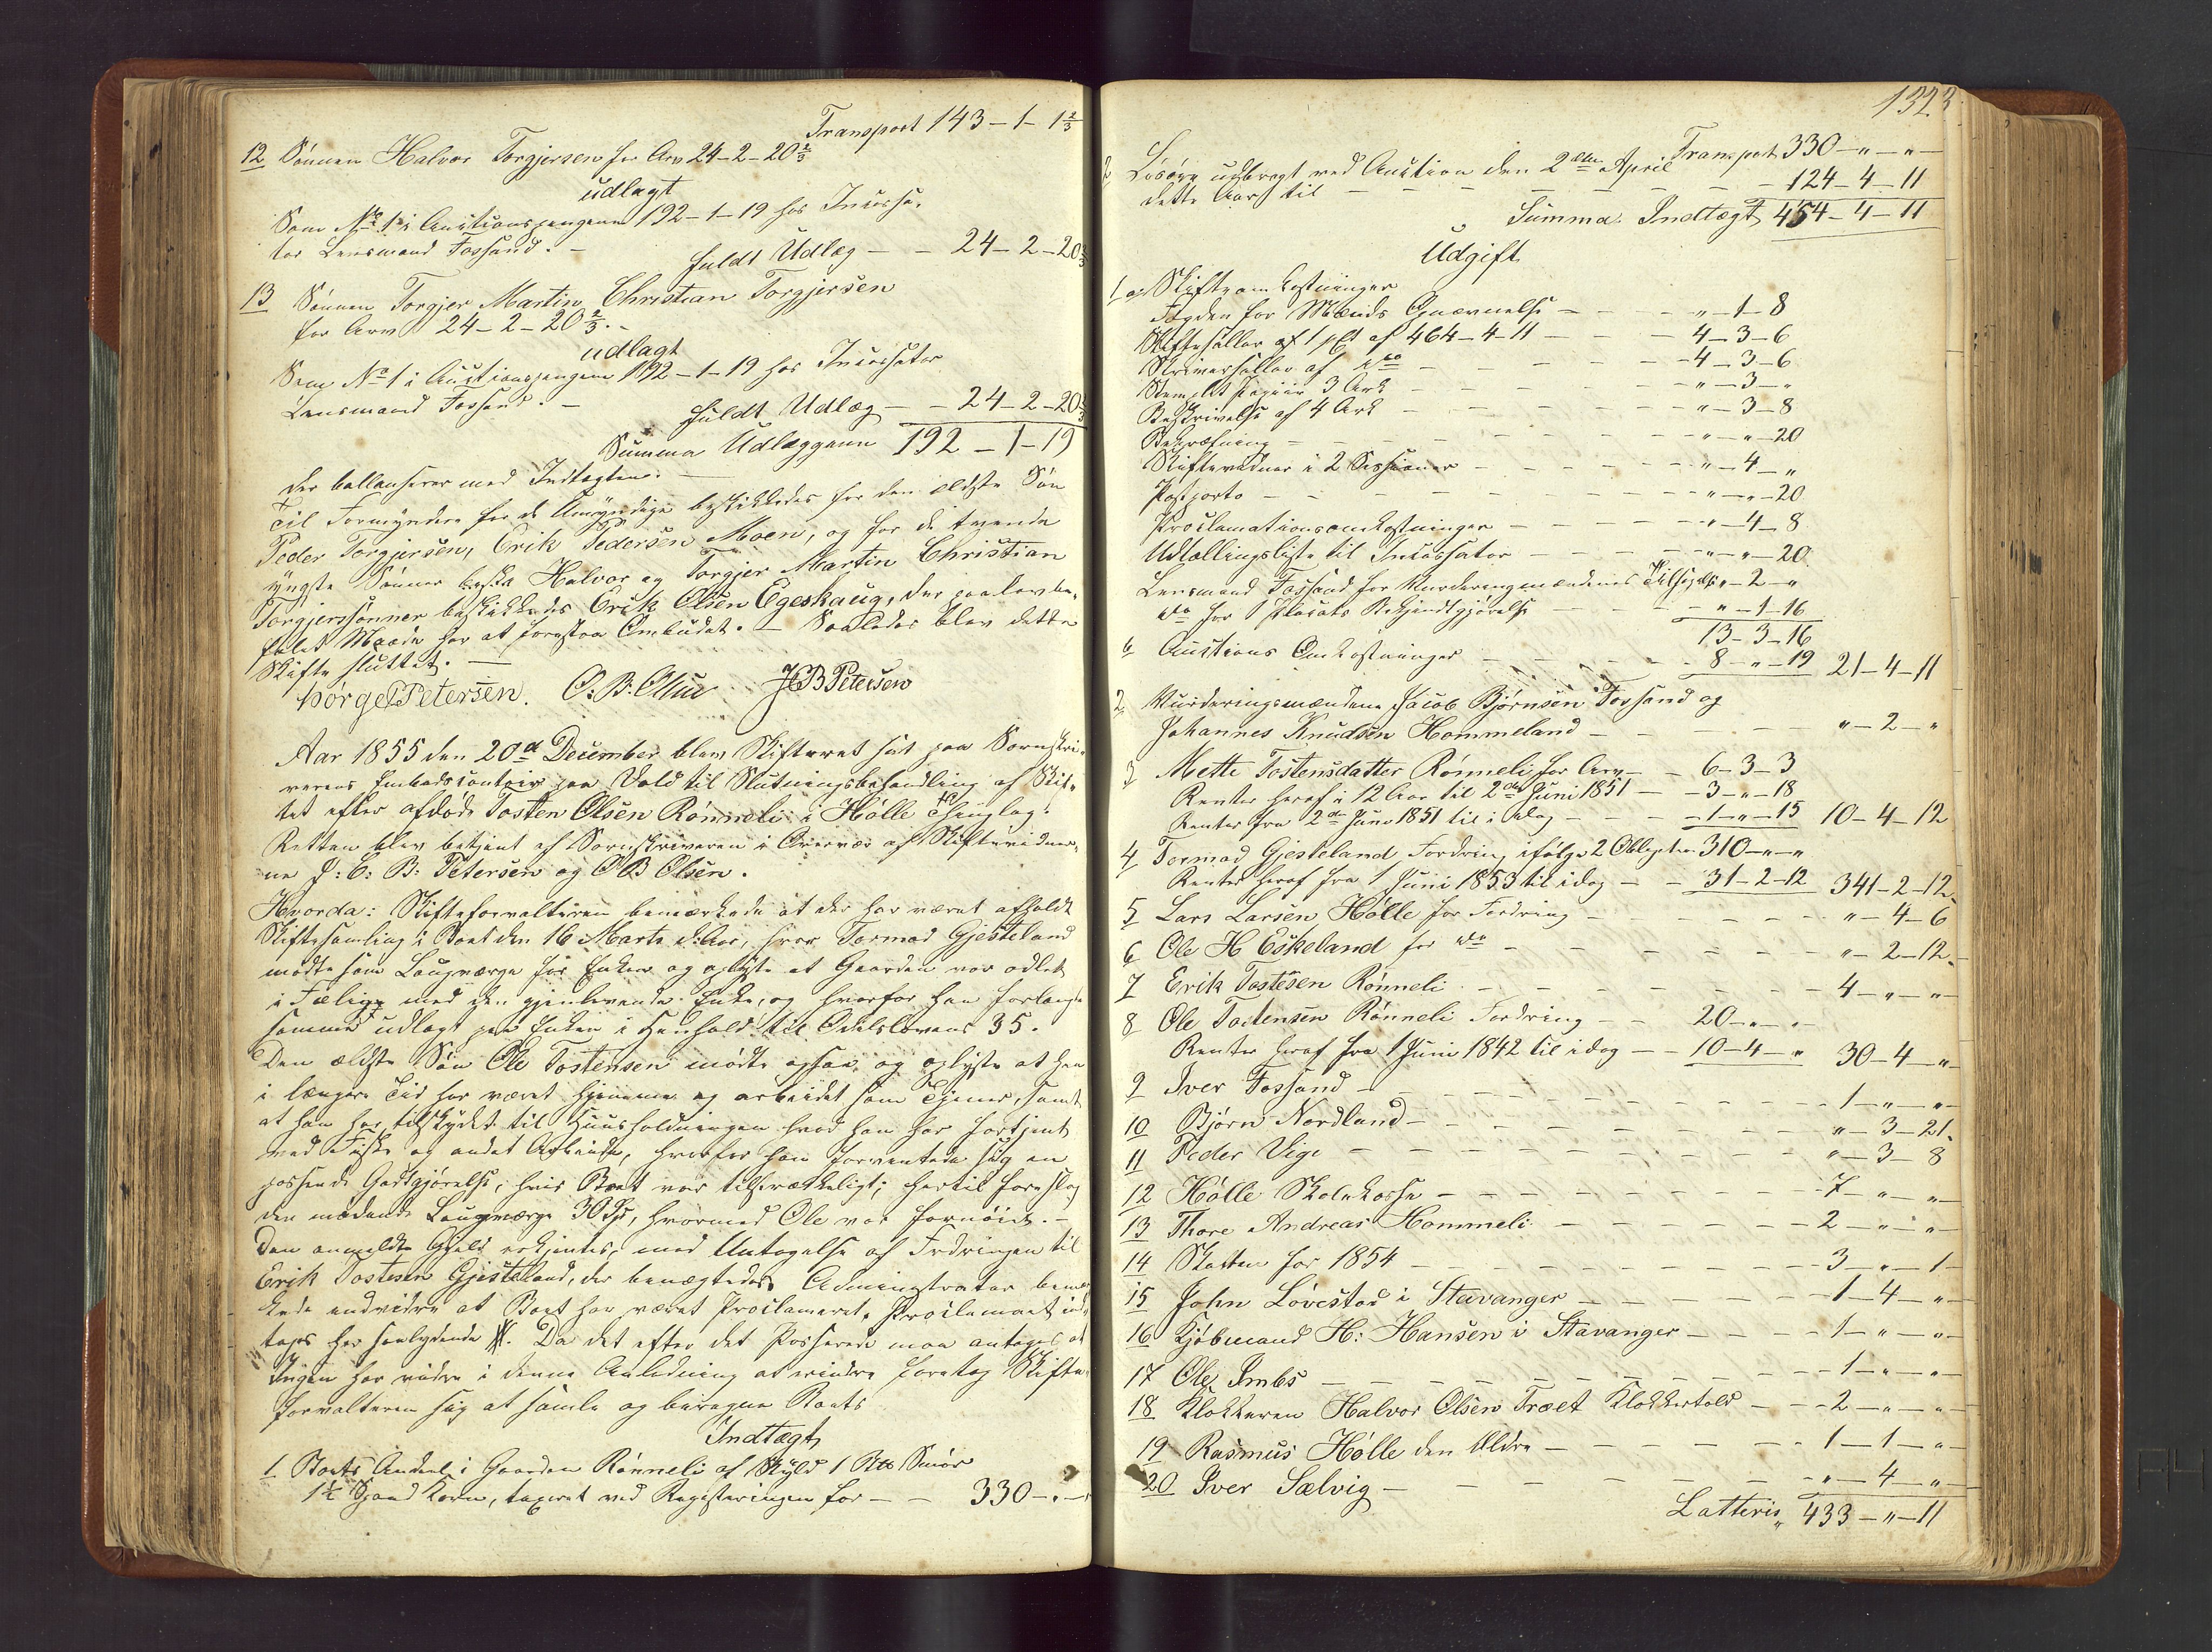 Transport 143-1-1⅔
12 Sønnen Halvor Torgjersen for Arv 24-2-20⅔
udlagt
Som No 1 i Auctionspengene 192-1-19 hos Incassa-
tor Lensmand Fossand. -
fuldt Udlæg - - 24-2-20⅔
13 Sønnen Torgjer Martin Christian Torgjersen
for Arv 24-2-20⅔. -
udlagt
Som No 1 i Auctionspengene 192-1-19 hos Incassator
Lensmand Fossand. -
fuldt Udlæg - - 24-2-20⅔
Summa Udlæggene 192-1-19
der ballanserer med Indtægten. -
Til Formyndere for de Umyndige beskikkedes for den ældste Søn
Peder Torgjersen, Erik Pedersen Moen, og for de tvende
yngste Sønner Halvor og Torgjer Martin Christian
Torgjerssønner beskikkedes Erik Olsen Egeskaug, der paa lovbe-
falet Maade har at forestaa Ombudet. - Saaledes blev dette
Skifte sluttet. -
Børge Petersen. O. B. Olsen JCB Petersen
Aar 1855 den 20de December blev Skifteret sat paa Sorenskri-
verens Embedscontoir paa Vold til Slutningsbehandling af Skif-
tet efter afdøde Tosten Olsen Rønneli i Hølle Thinglag.
Retten blev betjent af Sorenskriveren i Overvær af Skiftevidner-
ne J: C: B: Petersen og O B Olsen.
Hvorda: Skifteforvalteren bemærkede at der har været afholdt
Skiftesamling i Boet den 16 Marts d. Aar, hvor Tormod Gjesteland
mødte som Laugværge for Enken og oplyste at Gaarden var odlet
i Fælig med den gjenlevende Enke, og hvorfor han forlangte
samme udlagt paa Enken i Henhold til Odelslovens 35.
Den ældste Søn Ole Tostensen mødte ogsaa og oplyste at han
i længere Tid har været hjemme og arbeidet som Tjener, samt
at han har tilskydet til Huusholdningen hvad han har fortjent
ved Fiske og andet Arbeide, hvorfor han forventede sig en
passende Godtgjørelse, hvis Boet var tilstrækkeligt; hertil foreslog
den mødende Laugværge 30 Spd, hvormed Ole var fornøiet. -
Den anmeldte Gjæld erkjendtes, med Undtagelse af Fordringen til
Erik Tostesen Gjesteland, der benægtedes. Administrator bemær-
kede endvidere at Boet har været Proclameret. Proclamaet ind-
tages her saalydende #. Da det efter det Passerede maa antages at
Ingen har videre i denne Anledning at erindre foretog Skifte-
forvalteren sig at samle og beregne Boets
Indtægt
1 Boets Andeel i Gaarden Rønneli af Skyld 1 Smør
1½ Spand Korn, taxeret ved Registeringen for - - 330-"-"
132
Transport 330-"-"-
2 Løsøre udbragt ved Auction den 2den April
dette Aar til - - - - 124-4-11
Summa Indtægt 454-4-11
Udgift
1 a, Skifteomkostninger
Fogden for Mænds Opnævnelse - - - "-1-8
Skiftesallar af 1 pCt af 464-4-11 - - - 4-3-6
Skriversallar af do - - - 4-3-6
Stemplet Papiir 3 Ark - - - "-3-"
Beskrivelse af 4 Ark - - - "-3-8
Bekræftning - - - "-"-20
Skiftevidner i 2 Sessioner - - - "-4-"
Postporto - - - "-"-20
Proclamationsomkostninger - - - "-4-8
Udtællingsliste til Incassator - - - "-"-20
Lensmand Fossand for Vurderingsmændenes Tilsigelse "-2-"
do for 1 Placats Bekjendtgjørelse - - - "-1-16
13-3-16
b Auctions Omkostninger - - - 8-"-19 21-4-11
2 Vurderingsmændene Jacob Bjørnsen Fossand og
Johannes Knudsen Hommeland - - - "-2-"
3 Mette Tostensdatter Rønneli for Arv - - 6-3-3
Renter heraf i 12 Aar til 2de Juni 1851 - - 3-"-18
Renter fra 2de Juni 1851 til i Dag - - - 1-"-15 10-4-12
4 Tormod Gjesteland Fordring ifølge 2 Obligationer 310-"-"
Renter heraf fra 1 Juni 1853 til idag - - 31-2-12 341-2-12
5 Lars Larsen Hølle for Fordring - - - "-4-6
6 Ole H Eskeland for do - - - "-2-12
7 Erik Tostesen Rønneli - - - 4-"-"
8 Ole Tostensen Rønneli Fordring - - 20-"-"
Renter heraf fra 1 Juni 1842 til idag - - 10-4-" 30-4-"
9 Iver Fossand - - - 1-"-"
10 Bjørn Nordland - - - "-3-21
11 Peder Vige - - - "-3-8
12 Hølle Skolekasse - - - 7-"-"
13 Thore Andreas Hommeli - - - 2-"-"
14 Skatten for 1854 - - - 3-"-1
15 John Løvestad i Stavanger - - - 1-4-"
16 Kjøbmand H: Hansen i Stavanger - - - 1-"-"
17 Ole Imbs - - - 1-"-"
18 Klokkeren Halvor Olsen Træet Klokkertold - - - 2-"-"
19 Rasmus Hølle den Ældre - - - 1-1-"
20 Iver Sælvig - - - "-4-"
Latteris 433-"-11